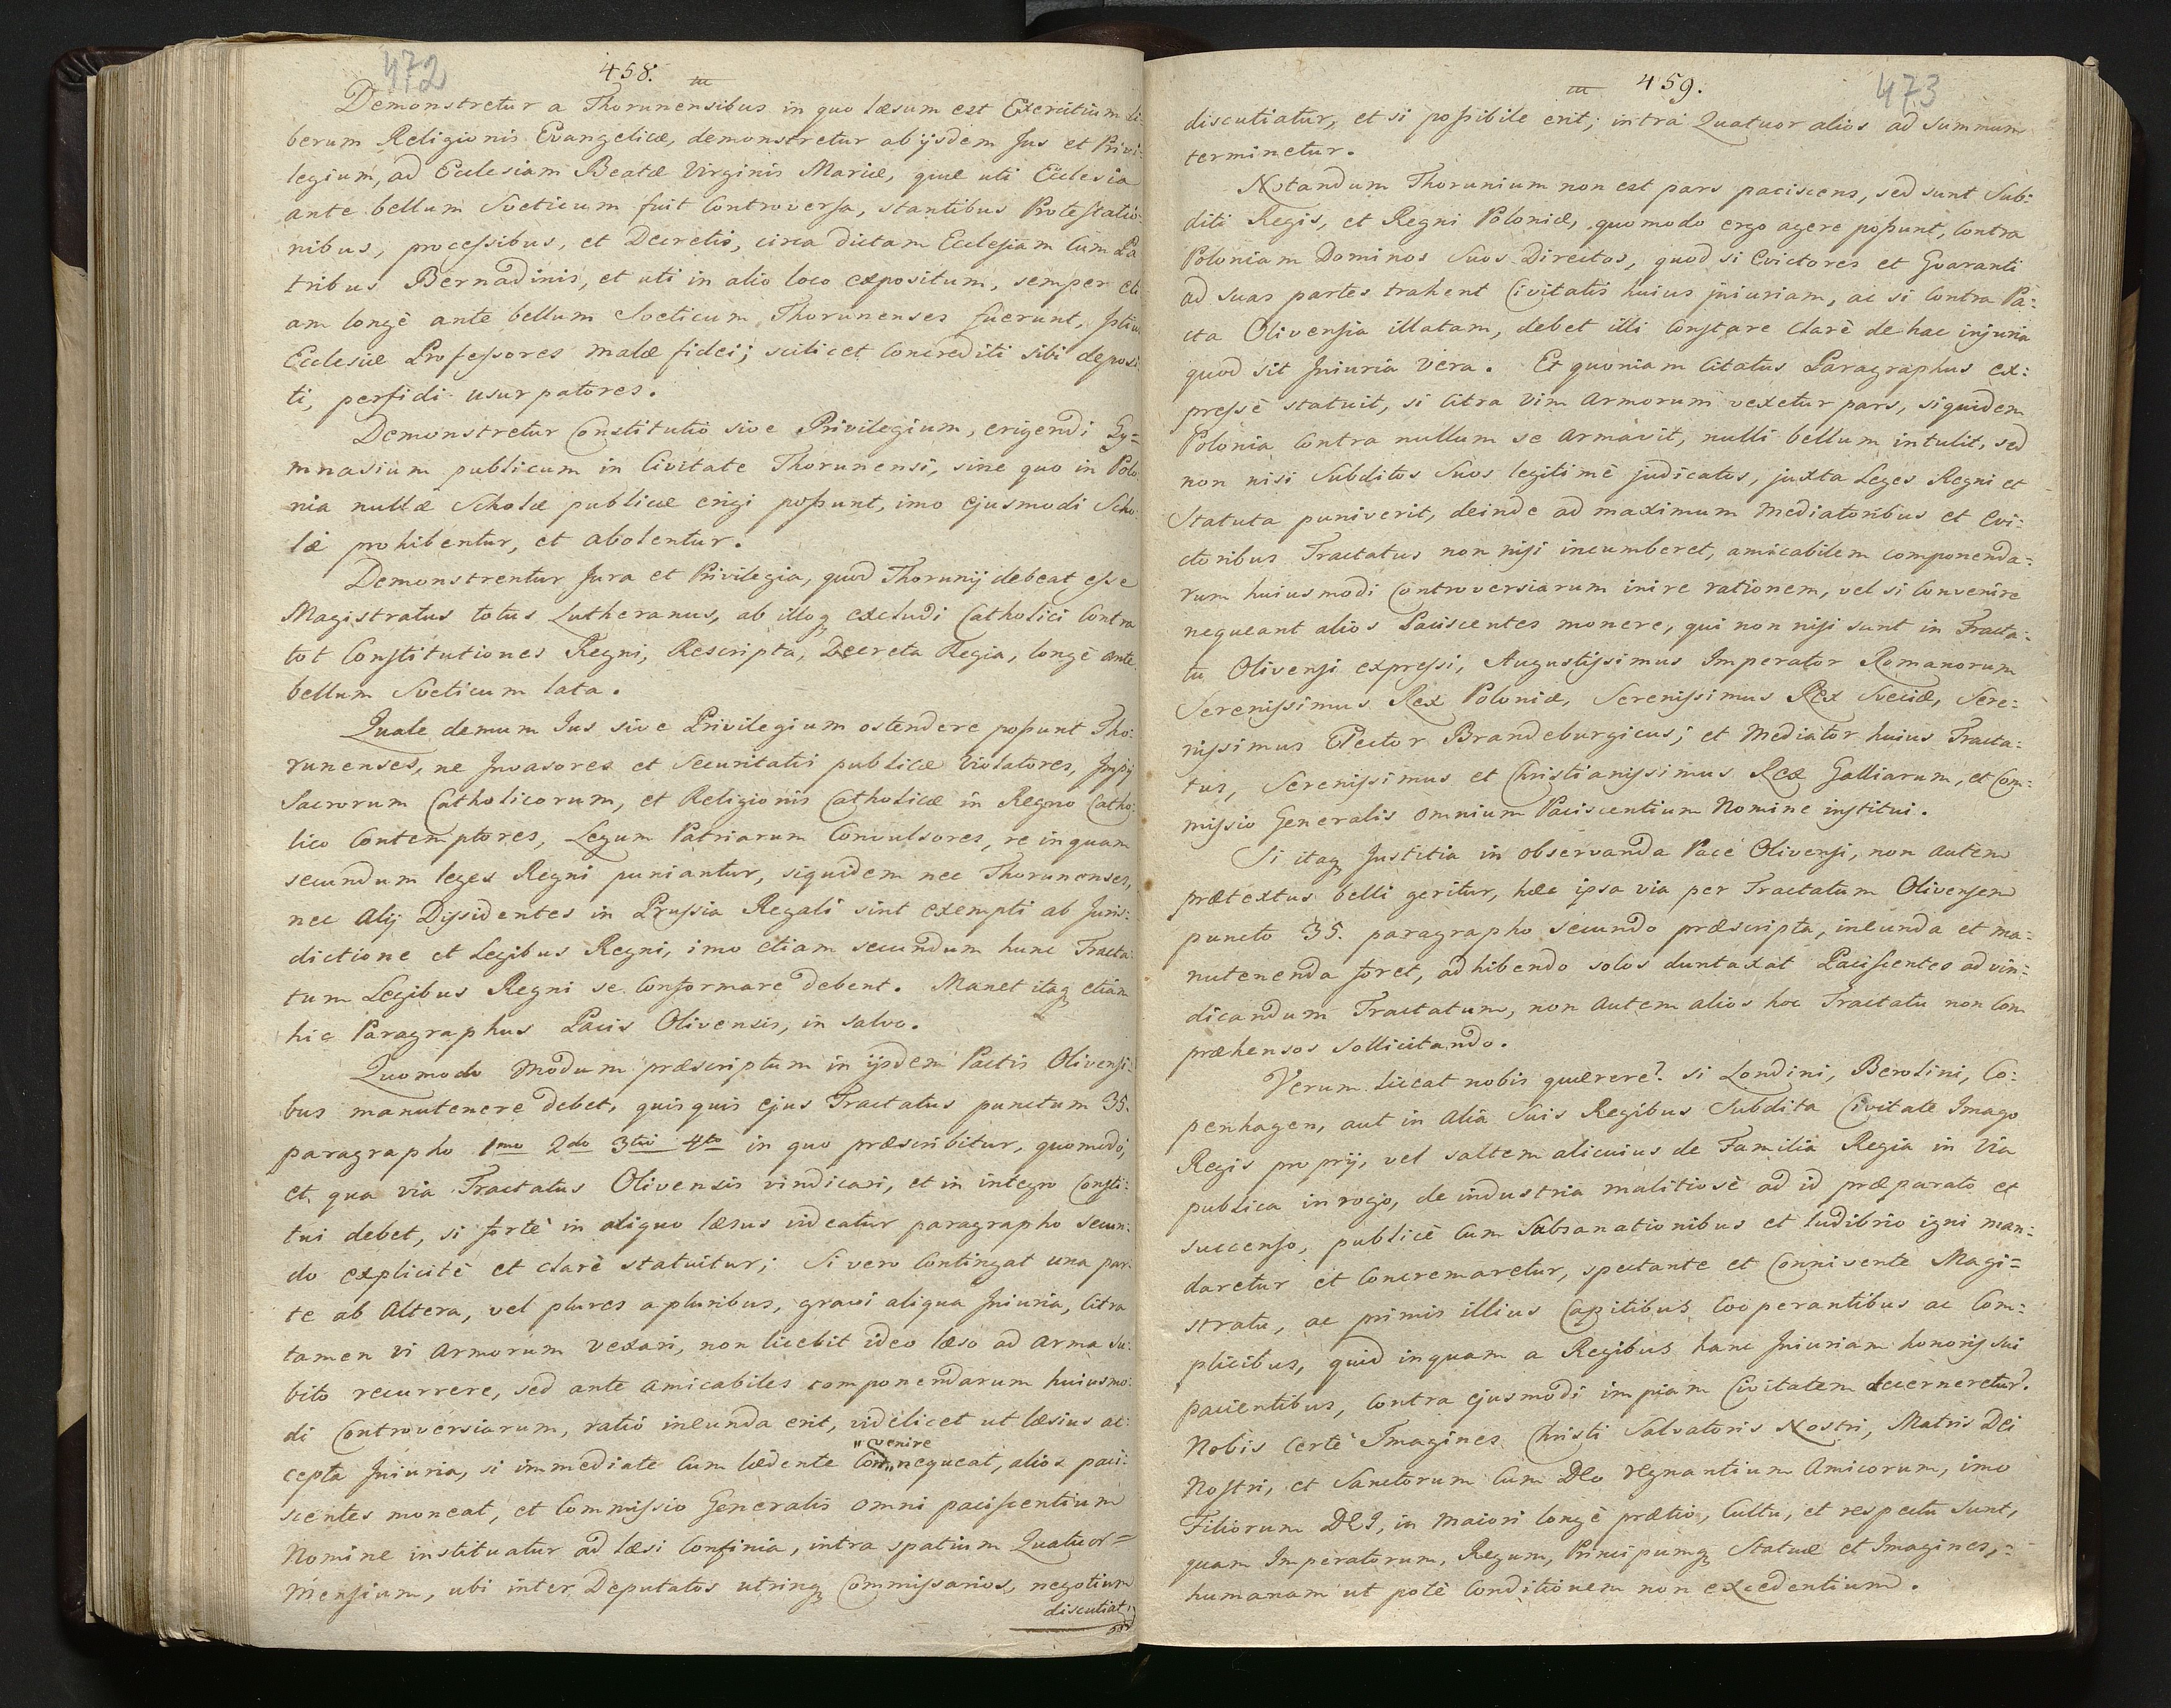 472
458.
Demonstretur a Thorunensibus in quo læsum est Exercitium li
berum Religionis Evangelicæ, demonstretur ab ijsdem Jus et Privi-
legium, ad Ecclesiam Beatæ Virginis Mariæ, quæ uti Ecclesia
ante bellum Sveticum fuit Controversa, stantibus Protestatio-
nibus, processibus, et Decretis, circa dictam Ecclesiam Cum Pa
tribus Bernadinis, et uti in alio loco expositum, semper eti
am longè ante bellum Sveticum Thorunenses fuerunt, Istius
Ecclesiæ Professores malæ fidei; scilicet Concrediti sibi deposi
ti, perfidi usurpatores.
Demonstretur Constitutio sive Privilegium, erigendi Gy=
mnasium publicum in Civitate Thorunensi, sine quo in Polo
nia nullæ Scholæ publicæ erigi possunt, imo ejusmodi Scho:
læ prohibentur, et abolentur.
Demonstrentur Jura et Privilegia, quod Thorunij debeat esse
Magistratus totus Lutheranus, ab illoq excludi Catholici Contra
tot Constitutiones Regni, Rescripta, Decreta Regia, longè ante
bellum Sveticum lata.
Quale demum Jus sive Privilegium ostendere possunt Tho:
runenses, ne Invasores et Securitatis publicæ Violatores, Impij
Sacrorum Catholicorum, et Religionis Catholicæ in Regno Catho:
lico Contemptores, Legum Patriarum Convulsores, re inquam
secundum leges Regni puniantur, siquidem nec Thorunenses,
nec Alij Dissidentes in Prussia Regali sint exempti ab Juris:
dictione et Legibus Regni, imo etiam secundum hunc Tracta:
tum Legibus Regni se Conformare debent. Manet itaq etiam
hic Paragraphus Pacis Olivensis, in salvo.
Quomodo Modum præscriptum in ijsdem Pactis Olivensi:
bus manutenere debet, quisquis ejus Tractatus punctum 35.
paragrapho 1mo 2do 3tio 4to in quo præscribitur, quomodo,
et qua via Tractatus Olivensis vindicari, et in integro Consti:
tui debet, si fortè in aliquo læsus videatur paragrapho secun:
do explicitè et clarè statuitur; Si vero Contingat una par:
te ab Altera, vel plures a pluribus, gravi aliqua Iniuria, Citra
tamen vi Armorum vexari, non licebit ideo læso ad arma su:
bito recurrere, sed ante amicabiles componendarum huiusmo:
di Controversiarum, ratio ineunda erit, videlicet ut læsius ac:
"venire
cepta Iniuria, si immediate Cum lædente Con" nequeat, alios paci:
scentes moneat, et Commissio Generalis omni paciscentium
Nomine instituatur ad læsi Confinia, intra spatium Quatuor=
Mensium, ubi inter Deputatos utrinq Commissarios, negotium
discutiat,
473
459.
discutiatur, et si possibile erit; intra Quatuor alios ad summum
terminetur.
Notandum Thorunium non est pars paciscens, sed sunt Sub:
diti Regis, et Regni Poloniæ, quomodo ergo agere possunt, Contra
Poloniam Dominos Suos Directos, quod si Evictores et Gvaranti
ad suas partes trahent Civitatis huius iniuriam, ac si Contra Pa:
cta Olivensia illatam, debet illi Constare Clarè de hac injuria
quod sit Iniuria Vera. Et quoniam Citatus Paragraphus ex:
pressè statuit, si Citra Vim Armorum vexetur pars, siquidem
Polonia Contra nullum se Armavit, nulli bellum intulit, sed
non nisi Subditos Suos legitimè judicatos, juxta Leges Regni et
Statuta puniverit, deinde ad maximum Mediatoribus et Evi:
ctoribus Tractatus non nisi incumberet, amicabilem componenda=
rum huiusmodi Controversiarum inire rationem, vel si Convenire
nequeant alios Paciscentes monere, qui non nisi sunt in Tracta:
tu Olivensi expressi, Augustissimus Imperator Romanorum
Serenissimus Rex Poloniæ, Serenissimus Rex Sveciæ, Sere=
nissimus Elector Brandeburgicus; et Mediator huius Tracta:
tus, Serenissimus et Christianissimus Rex Galliarum, et Com:
missio Generalis omnium Paciscentium Nomine institui.
Si itaq Justitia in observanda Pace Olivensi, non autem
prætextus belli geritur, hæc ipsa via per Tractatum Olivensem
puncto 35. paragrapho secundo præscripta, ineunda et ma=
nutenenda foret, adhibendo solos duntaxat Paciscentes ad vin:
dicandum Tractatum, non autem alios hoc Tractatu non Com
præhensos sollicitando.
Verum liceat nobis quærere? si Londini, Berolini, Co:
penhagen, aut in aliâ Suis Regibus Subdita Civitate Imago
Regis proprij, vel saltem alicuius de Familia Regia in Via
publica in rogo, de industria malitiosè ad id præparato et
succenso, publicè Cum Subsanationibus et ludibrio igni man:
daretur et Concremaretur, spectante et Connivente Magi=
stratu, ac primis illius Capitibus Cooperantibus ac Com:
plicibus, quid inquam a Regibus hanc Iniuriam honoris sui
pacientibus, Contra ejusmodi impiam Civitatem decerneretur?
Nobis Certè Imagines Christi Salvatoris Nostri, Matris Dei
Nostri, et Sanctorum Cum Deo regnantium Amicorum, imo
Filiorum DEI, in maiori longè prætio, Cultu, et respectu Sunt,
quam Imperatorum, Regum, Principumq Statuæ et Imagines,
humanam ut potè Conditionem non excedentium.